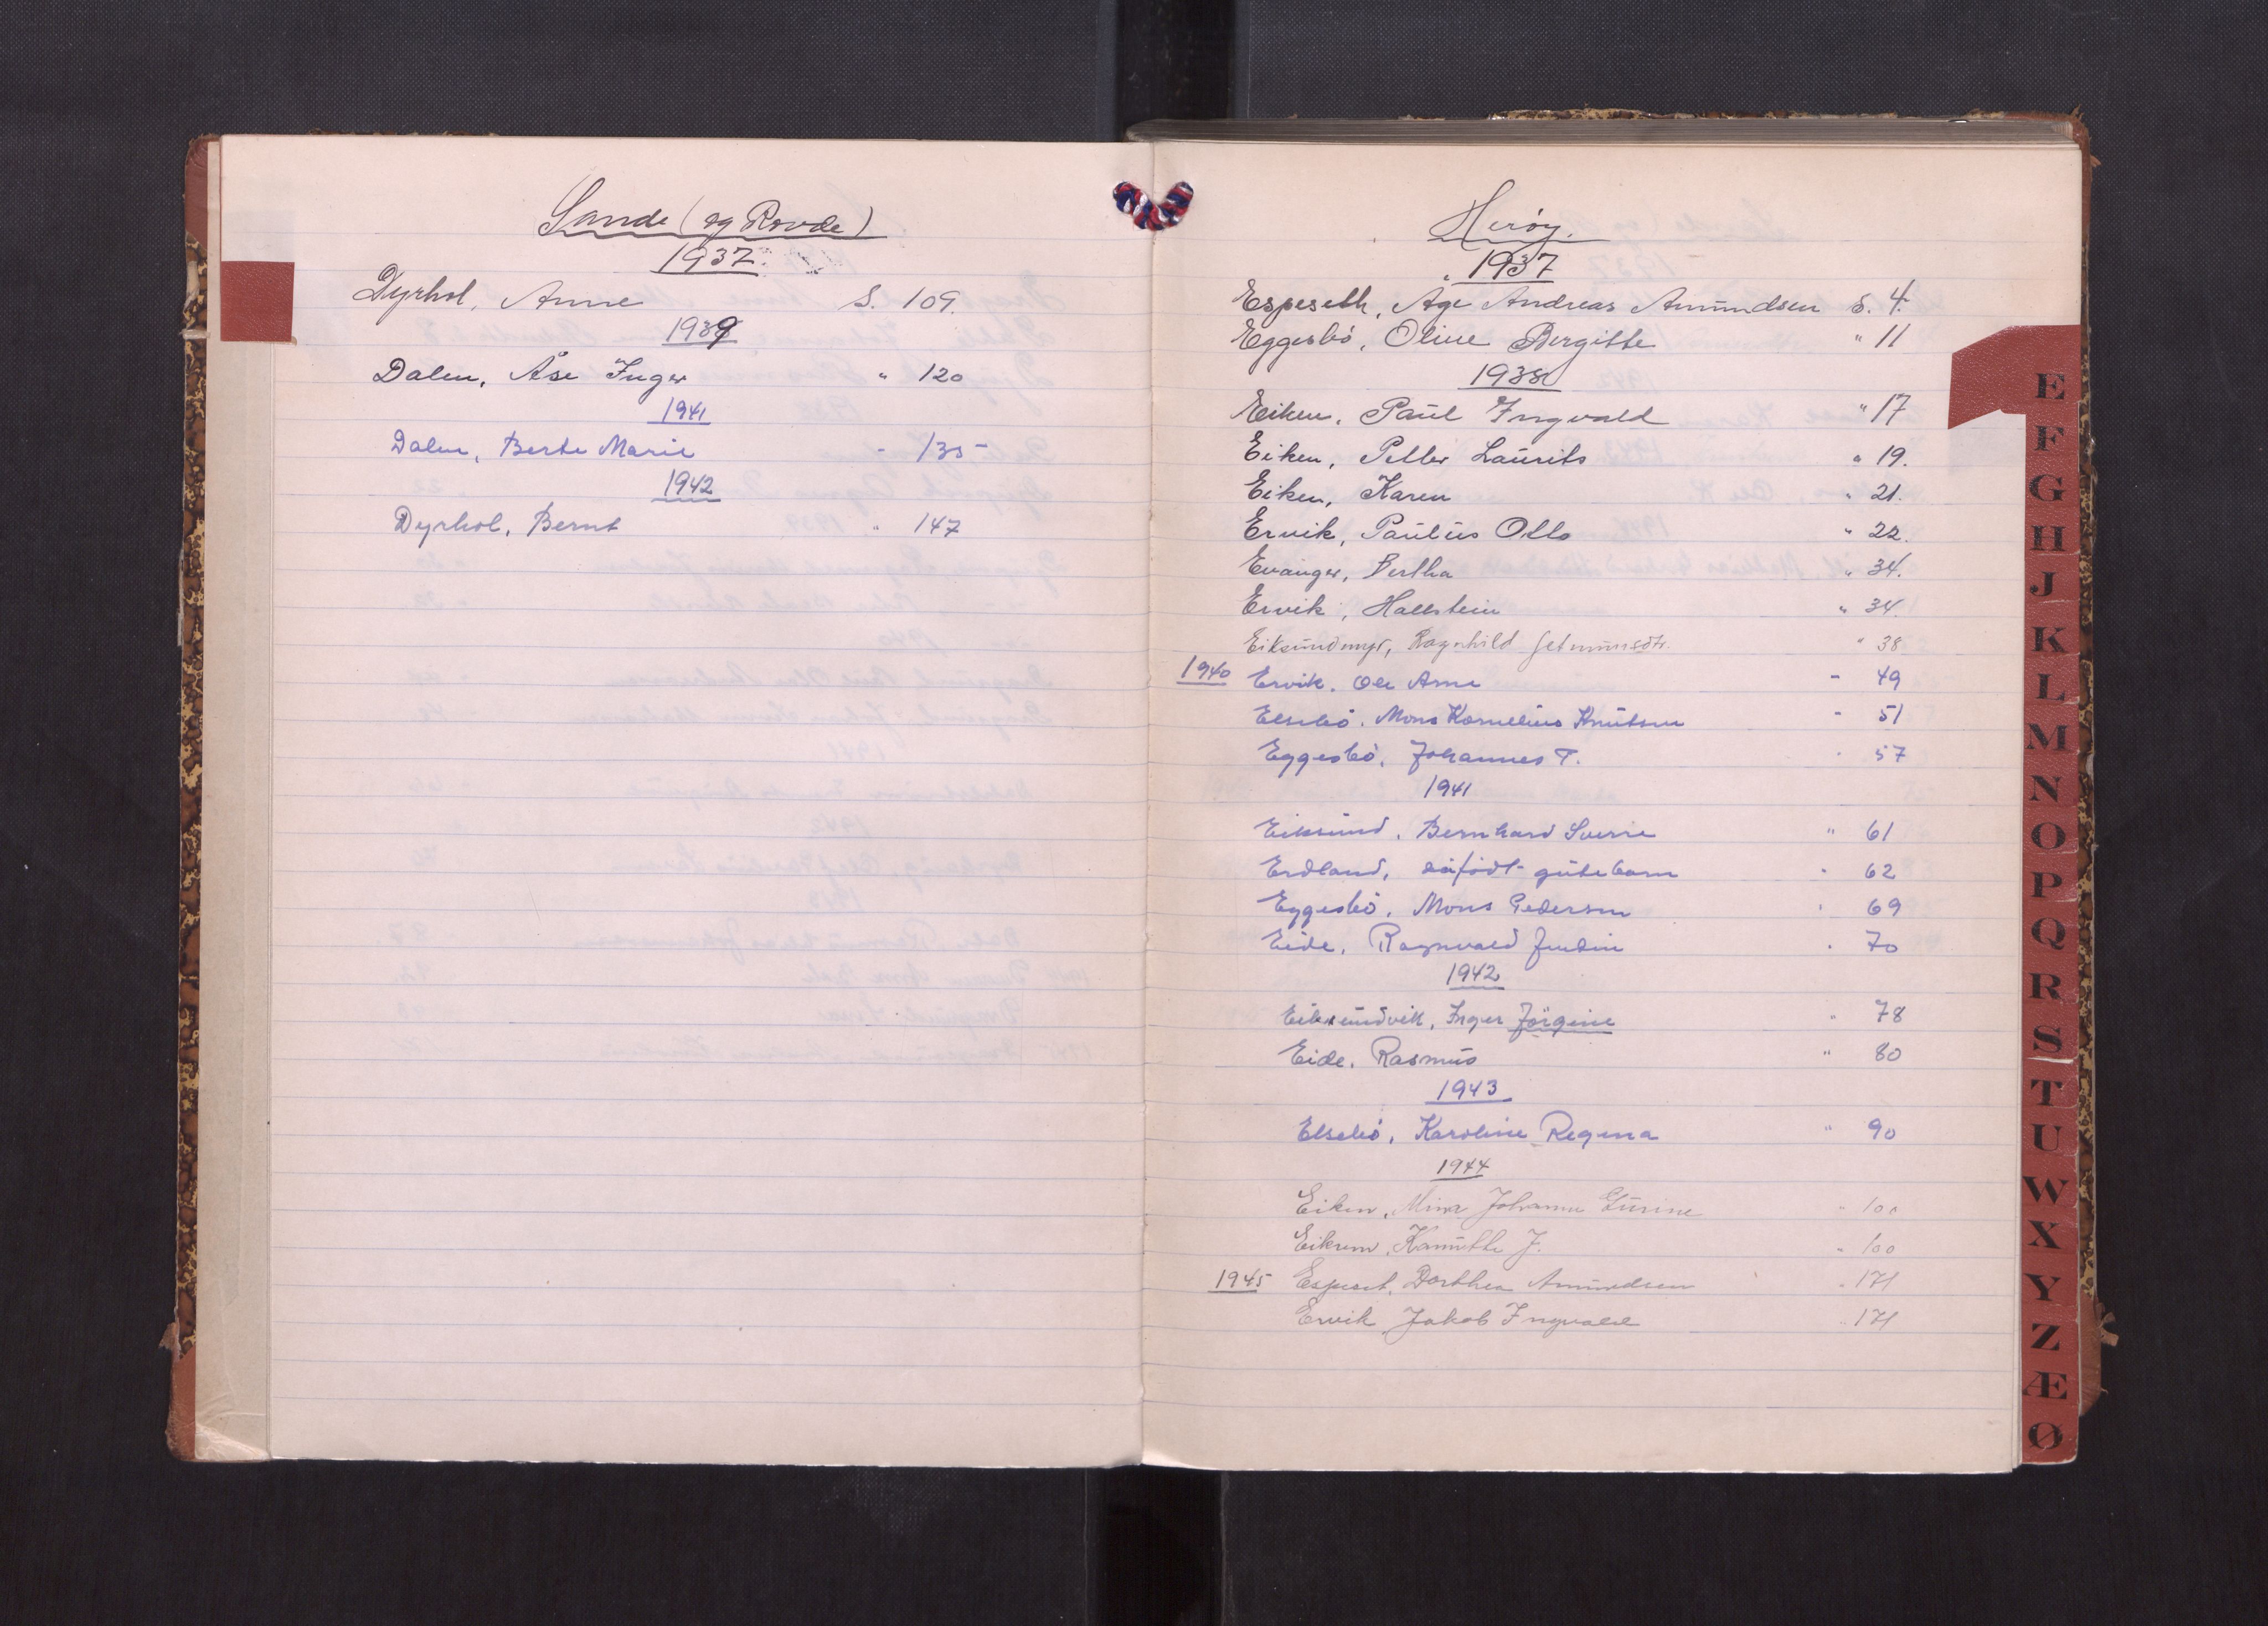 Sande (og Rovde)
1937.
Dyrhol, Anne S. 109.
1939
Dalen, Åse Inger " 120
1941
Dalen, Berte Marie - 135
1942
Dyrhol, Bernt " 147
Herøy.
1937
Espeseth, Åge Andreas Amundsen S. 4.
Eggesbö, Oline Bergitte " 11
1938
Eiken, Paul Ingvald " 17
Eiken, Petter Laurits " 19.
Eiken, Karen " 21.
Ervik, Paulus Otto " 22.
Evanger, Bertha " 34.
Ervik, Hallstein " 34.
Eiksundmyr, Ragnhild " 38
1940 Ervik, Ole Arne - 49
Elsebö, Mons Kornelius Knutsen - 51
Eggesbö, Johannes T. - 57
1941
Eiksund, Bernhard Sverre " 61
Erdland, dåfödt gutebarn - 62
Eggesbö, Mons Pedersen " 69
Eide, Ragnvald 70
1942
Eiksundvik, Inger Jörgine " 78
Eide, Rasmus " 80
1943
Elsebö, Karoline Regina " 90
1944
Eiken, Mina Johanne Gurine " 100
Eikrem, Kanutte J. " 100
1945 Espeset, Dorthea Amundsen " 171
Ervik Jakob Ingvald " 171
E
F
G
H
J
K
L
M
N
O
P
Q
R
S
T
U
W
X
Y
Z
Æ
Ø